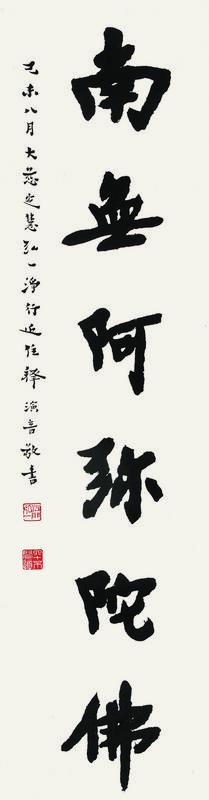 南無阿弥陀佛
己未八月大慈定慧弘一净行近住釋演音敬書